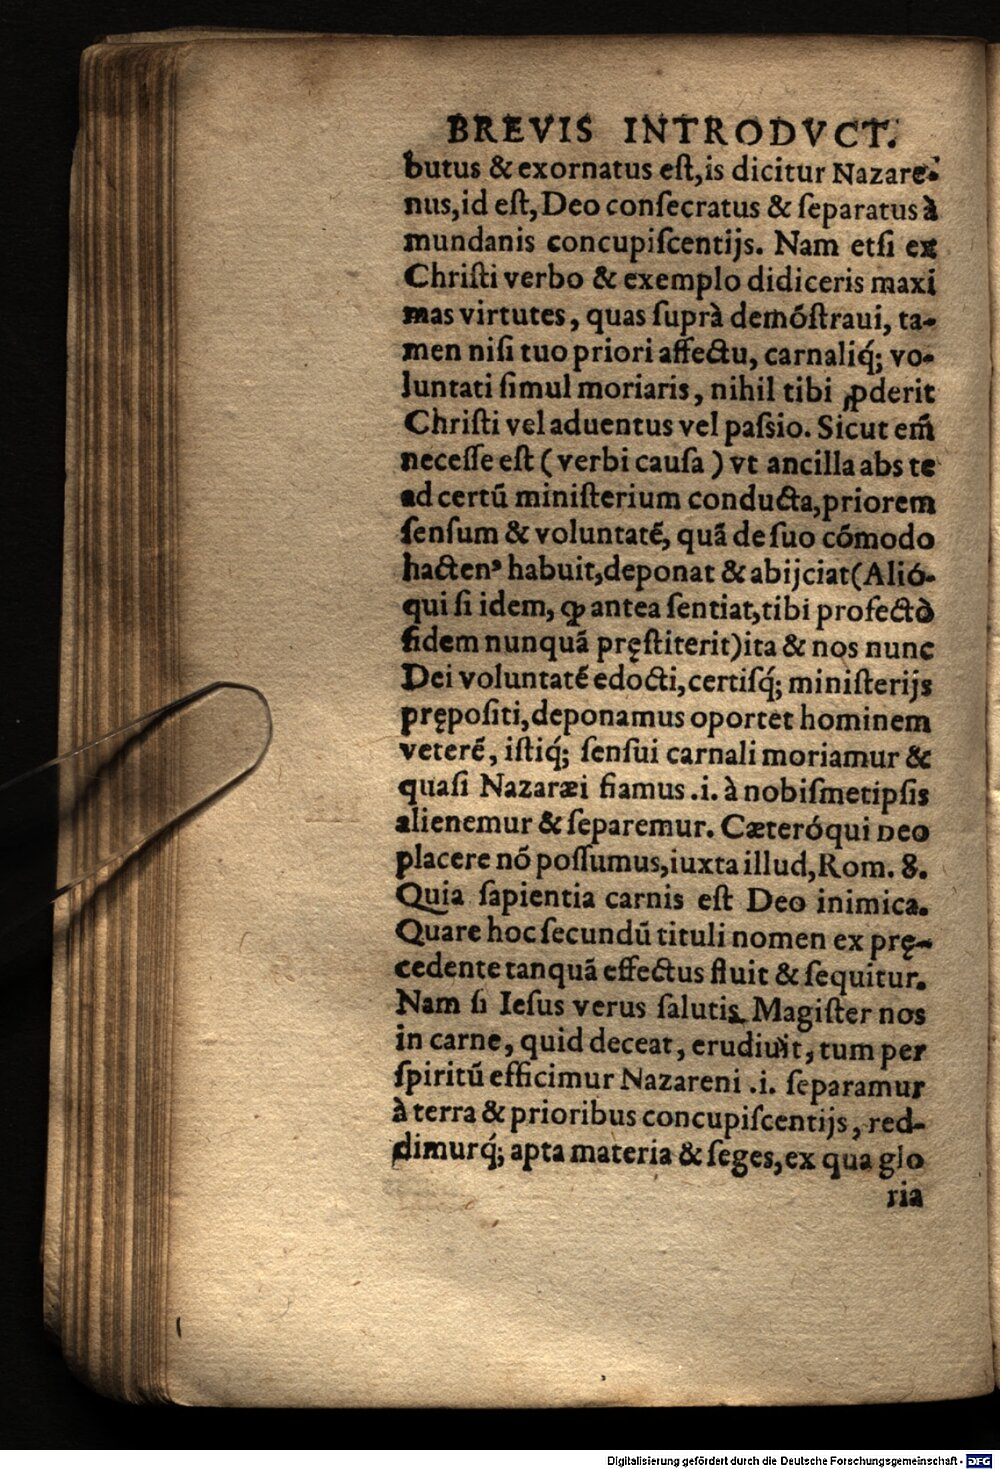 BREVIS INTRODVCT.
butus & exornatus eſt, is dicitur Nazare-
nus, id eſt, Deo conſecratus & ſeparatus à
mundanis concupiſcentijs. Nam etſi ex
Chriſti verbo & exemplo didiceris maxi
mas virtutes, quas ſuprà demóſtraui, ta-
men niſi tuo priori affectu, carnaliq́; vo-
luntati ſimul moriaris, nihil tibi ꝓderit
Chriſti vel aduentus vel paſsio. Sicut em̃
neceſſe eſt ( verbi cauſa ) vt ancilla abs te
ad certũ miniſterium conducta, priorem
ſenſum & voluntatẽ, quã de ſuo cómodo
hactenꝰ habuit, deponat & abijciat (Alió-
qui ſi idem, ꝙ antea ſentiat, tibi profectò
fidem nunquã pręſtiterit) ita & nos nunc
Dei voluntatẽ edocti, certiſq́; miniſterijs
prępoſiti, deponamus oportet hominem
veterẽ, iſtiq́; ſenſui carnali moriamur &
quaſi Nazaræi fiamus .i. à nobiſmetipſis
alienemur & ſeparemur. Cæteróqui Deo
placere nõ poſſumus, iuxta illud, Rom. 8.
Quia ſapientia carnis eſt Deo inimica.
Quare hoc ſecundũ tituli nomen ex prę-
cedente tanquã effectus fluit & ſequitur.
Nam ſi Ieſus verus ſalutis Magiſter nos
in carne, quid deceat, erudiuit, tum per
ſpiritũ efficimur Nazareni .i. ſeparamur
à terra & prioribus concupiſcentijs, red-
dimurq́; apta materia & ſeges, ex qua glo
ria
Digitalisierung gefördert durch die Deutsche Forschungsgemeinschaft - DFG